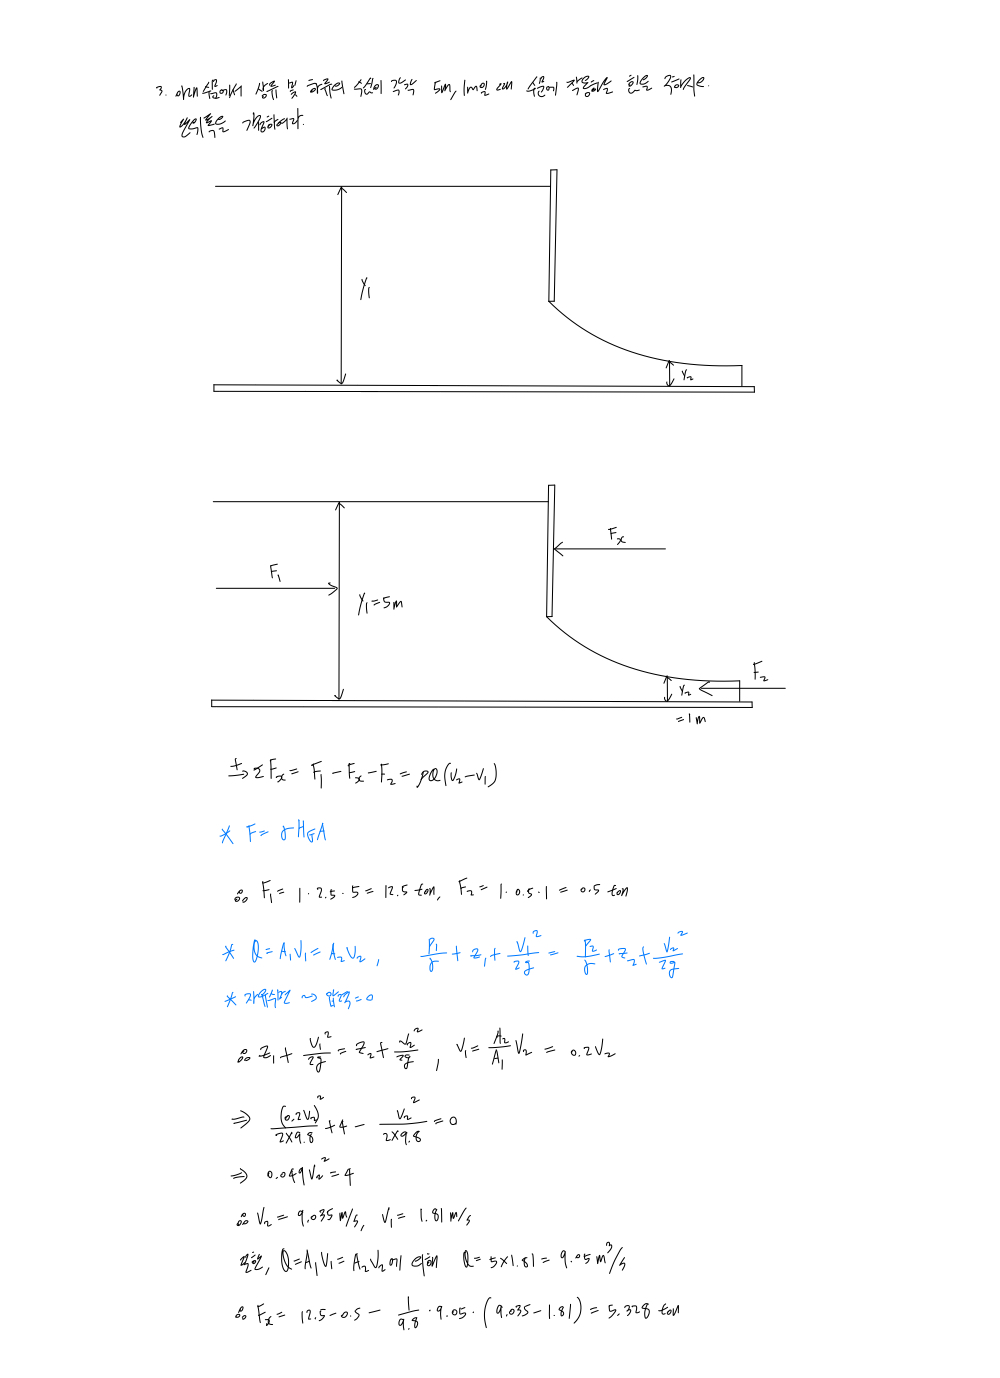 3. 아래 수문에서 상류 및 하류의 수심이 각각 5m, 1m일 때 수문에 작용하는 힘을 구하시오.
단위폭을 가정하여라.
Y₁
Y₂
Fₓ
F₁
Y₁=5m
F₂
Y₂
=1m
±→ΣFₓ= F₁-Fₓ-F₂=ρQ(V₂-V₁)
* F= γH_GA
∴ F₁= 1·2.5·5= 12.5 ton, F₂= 1·0.5·1 = 0.5 ton
* Q=A₁V₁=A₂V₂, P₁/γ + Z₁ + V₁²/2g = P₂/γ + Z₂ + V₂²/2g
* 자유수면 ~> 압력=0
∴ Z₁ + V₁²/2g = Z₂ + V₂²/2g, V₁= A₂/A₁ V₂ = 0.2V₂
⇒ (0.2V₂)²/2×9.8 + 4 - V₂²/2×9.8 = 0
⇒ 0.049V₂²=4
∴ V₂= 9.035 m/s, V₁= 1.81 m/s
또한, Q=A₁V₁=A₂V₂에 의해 Q= 5×1.81= 9.05 m³/s
∴ Fₓ= 12.5-0.5- 1/9.8 ·9.05·(9.035-1.81)= 5.328 ton